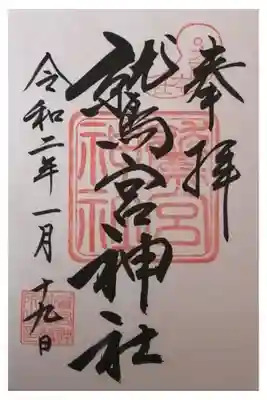 奉拝
鷲宮神社
令和二年一月十九日